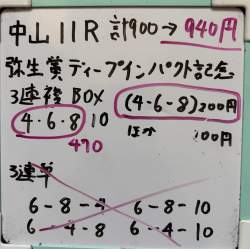 中山11R 計900→940円
弥生賞ディープインパクト記念
3連複BOX (4・6・8)200円
4・6・8 10 ほか 100円
470
3連単
6-8-4 6-8-10
6-4-8 6-4-10